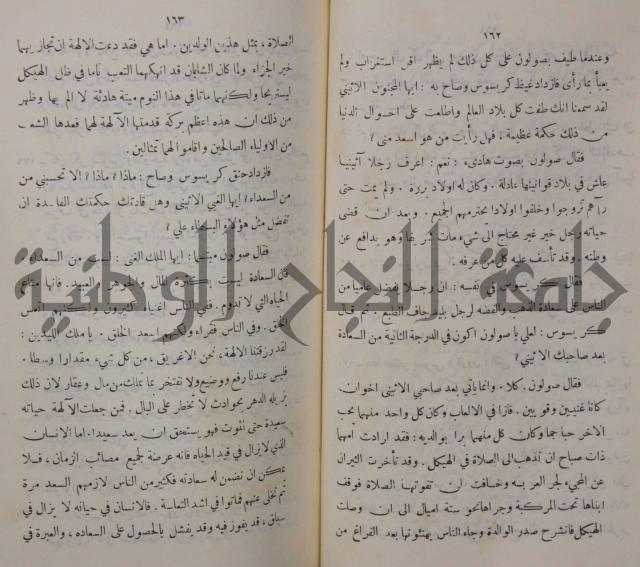 ١٦٢
وعندما طيف بصولون على كل ذلك لم يظهر اقل استغراب ولم
يعبأ بما رأى فازداد غيظ كريسوس وصاح به : ايها المجنون الاثيني
لقد سمعنا انك طفت كل بلاد العالم واطلعت على احوال الدنيا
من ذلك حكمة عظيمة ، فهل رأيت من هو اسعد مني ؟
فقال صولون بصوت هادىء : نعم : اعرف رجلا آثينيا
عاش في بلاد قوانيتها عادلة . وكان له اولاد بررة . ولم يمت حتى
رآهم تزوجوا وخلفوا اولادا يحترمهم الجميع . وبعد ان قضى
حياته رجل خير غير محتاج الى شيء مات وهو يدافع عن
وطنه . وقد تأسف عليه كل من عرفه .
فقال كريسوس في نفسه : ان رجلا يفضل عاميا من
الناس على سعادة الذهب والفضه لرجل بليد جاف الطبع . ثم قال
كريسوس : لعلي يا صولون اكون في الدرجة الثانية من السعادة
بعد صاحبك الاثيني ؟
فقال صولون . كلا . وانما يأتي بعد صاحبي الاثيني اخوان
كانا غنيين وقويين . فازا في الالعاب وكان كل واحد منهما يحب
الاخر حبا جما وكان كل منهما برا بوالديه : فقد ارادت امهما
ذات صباح ان تذهب الى الصلاة في الهيكل . وقد تأخرت الثيران
عن المجيء لجر العربه وخافت ان تفوتها الصلاة فوقف
ابناها تحت المركبة وجراها نحو ستة اميال الى ان وصلت
الهيكل فانشرح صدر الوالدة وجاء الناس يهنئونها بعد الفراغ من
١٦٣
الصلاة ، بمثل هذين الولدين . اما هي فقد دعت الالهة ان تجازيهما
خير الجزاء ولما كان الشابان قد انهكهما التعب ناما في ظل الهيكل
ليستريحا ولكنهما ماتا في هذا النوم ميتة هادئة لا الم بها وظهر
من ذلك ان هذه اعظم بركة قدمتها الآلهة لهما فعدها الشعب
من الاولياء الصالحين واقاموا لهما تمثالين .
فازداد حنق كريسوس وصاح : ماذا ؟ ماذا ؟ الا تحسبني من
من السعداء ؟ ايها الغبي الاثيني وهل قادتك حكمتك الفاسدة ان
تفضل مثل هؤلاء البسطاء علي ؟
فقال صولون مبتسما : ايها الملك الغني : لست من السعداء .
فان السعادة ليست بكثرة المال والجوهر والعبيد . فانها متاع
الحياه التي لا تدوم . ففي الناس اغنياء كثيرون ولكنهم اتعس
الخلق . وفي الناس فقراء ولكنهم اسعد الخلق . يا ملك الليديين :
لقد رزقتنا الالهة ، نحن الاغريق ، من كل شيء مقدارا وسطا .
فليس عندنا رفيع ووضيع ولا نفتخر بما نملك من مال وعقار لان ذلك
يزيله الدهر بحوادث لا تخطر على البال . فمن جعلت الآلهة حياته
سعيدة حتى تفوت فهو يستحق ان يعد سعيدا . اما الانسان
الذي لا يزال في قيد الحياه فانه عرضة لجميع مصائب الزمان ، فلا
يمكن ان نضمن له سعادته فكثير من الناس لازمهم السعد مرة
ثم تخلى عنهم فماتوا في اشد التعاسة . فالانسان في حياته لا يزال في
سباق ، قد يفوز فيه وقد يفشل بالحصول على السعاده ، والعبرة في
جامعة النجاح الوطنية